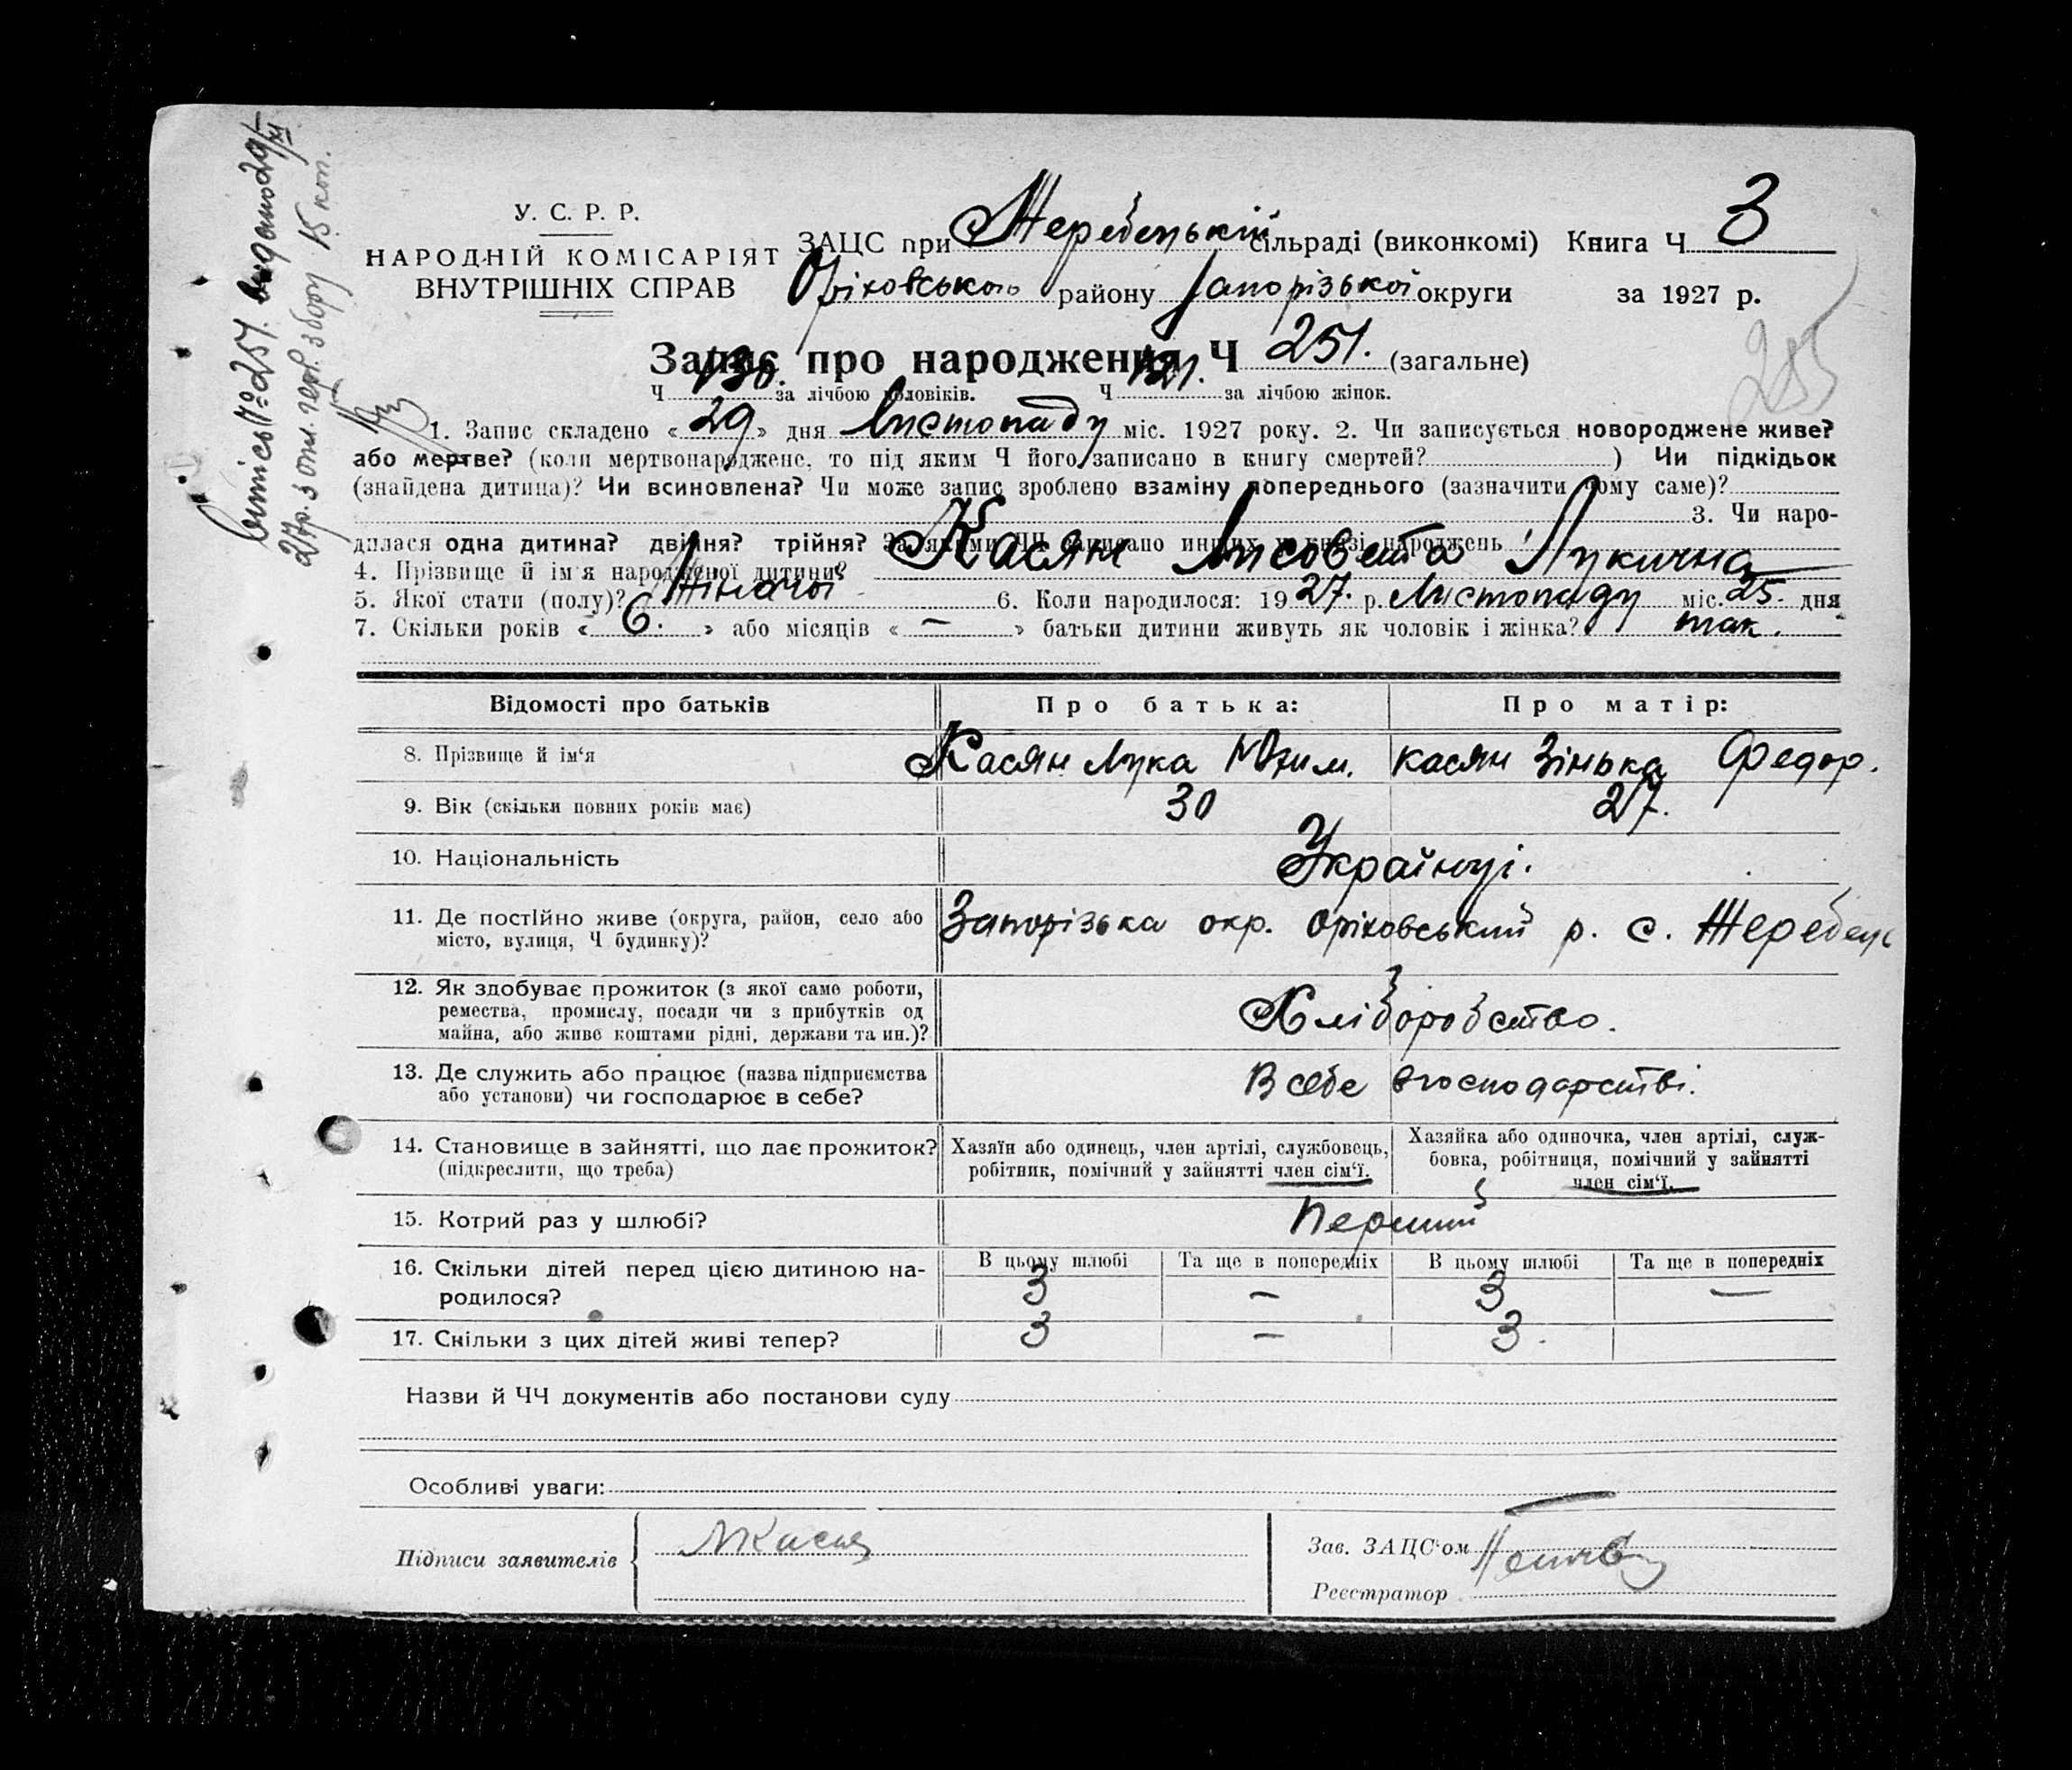 витісь № 251. видано 29/XI
27р. з отм. герб. збору 15 коп.
У. С. Р. Р.
НАРОДНІЙ КОМІСАРІЯТ
ВНУТРІШНІХ СПРАВ
ЗАЦС при Жеребецькій сільраді (виконкомі) Книга Ч 3
Оріховського району Запорізької округи за 1927 р.
Запис про народження Ч 251. (загальне)
285
Ч 130. за лічбою чоловіків. Ч 121. за лічбою жінок.
1. Запис складено « 29 » дня Листопаду міс. 1927 року. 2. Чи записується новороджене живе?
або мертве? (коли мертвонароджене, то під яким Ч його записано в книгу смертей? ) Чи підкідьок
(знайдена дитина)? Чи всиновлена? Чи може запис зроблено взаміну попереднього (зазначити чому саме)?
3. Чи наро-
дилася одна дитина? двійня? трійня? За якими ЧЧ записано инших у книзі народжень
4. Прізвище й ім'я народженої дитини? Касян Лисовета Лукична
5. Якої стати (полу)? Жіночої 6. Коли народилося: 1927. р. Листопаду міс. 25. дня
7. Скільки років « 6. » або місяців « — » батьки дитини живуть як чоловік і жінка? так.
Відомості про батьків Про батька: Про матір:
8. Прізвище й ім'я Касян Лука Юхим. Касян Зінька Федор.
9. Вік (скільки повних років має) 30 27.
10. Національність Українці.
11. Де постійно живе (округа, район, село або
місто, вулиця, Ч будинку)? Запорізька окр. Оріховський р. с. Жеребець
12. Як здобуває прожиток (з якої саме роботи,
ремества, промислу, посади чи з прибутків од
майна, або живе коштами рідні, держави та ин.)? Хліборобство.
13. Де служить або працює (назва підприємства
або установи) чи господарює в себе? В себе в господарстві.
14. Становище в зайнятті, що дає прожиток?
(підкреслити, що треба)
Хазяїн або одинець, член артілі, службовець,
робітник, помічний у зайнятті член сім'ї.
Хазяйка або одиночка, член артілі, служ-
бовка, робітниця, помічний у зайнятті
член сім'ї.
15. Котрий раз у шлюбі? Перший
В цьому шлюбі Та ще в попередніх В цьому шлюбі Та ще в попередніх
16. Скільки дітей перед цією дитиною на-
родилося? 3 — 3 —
17. Скільки з цих дітей живі тепер? 3 — 3.
Назви й ЧЧ документів або постанови суду
Особливі уваги:
Підписи заявителів ЛКасян
Зав. ЗАЦС'ом
Реєстратор